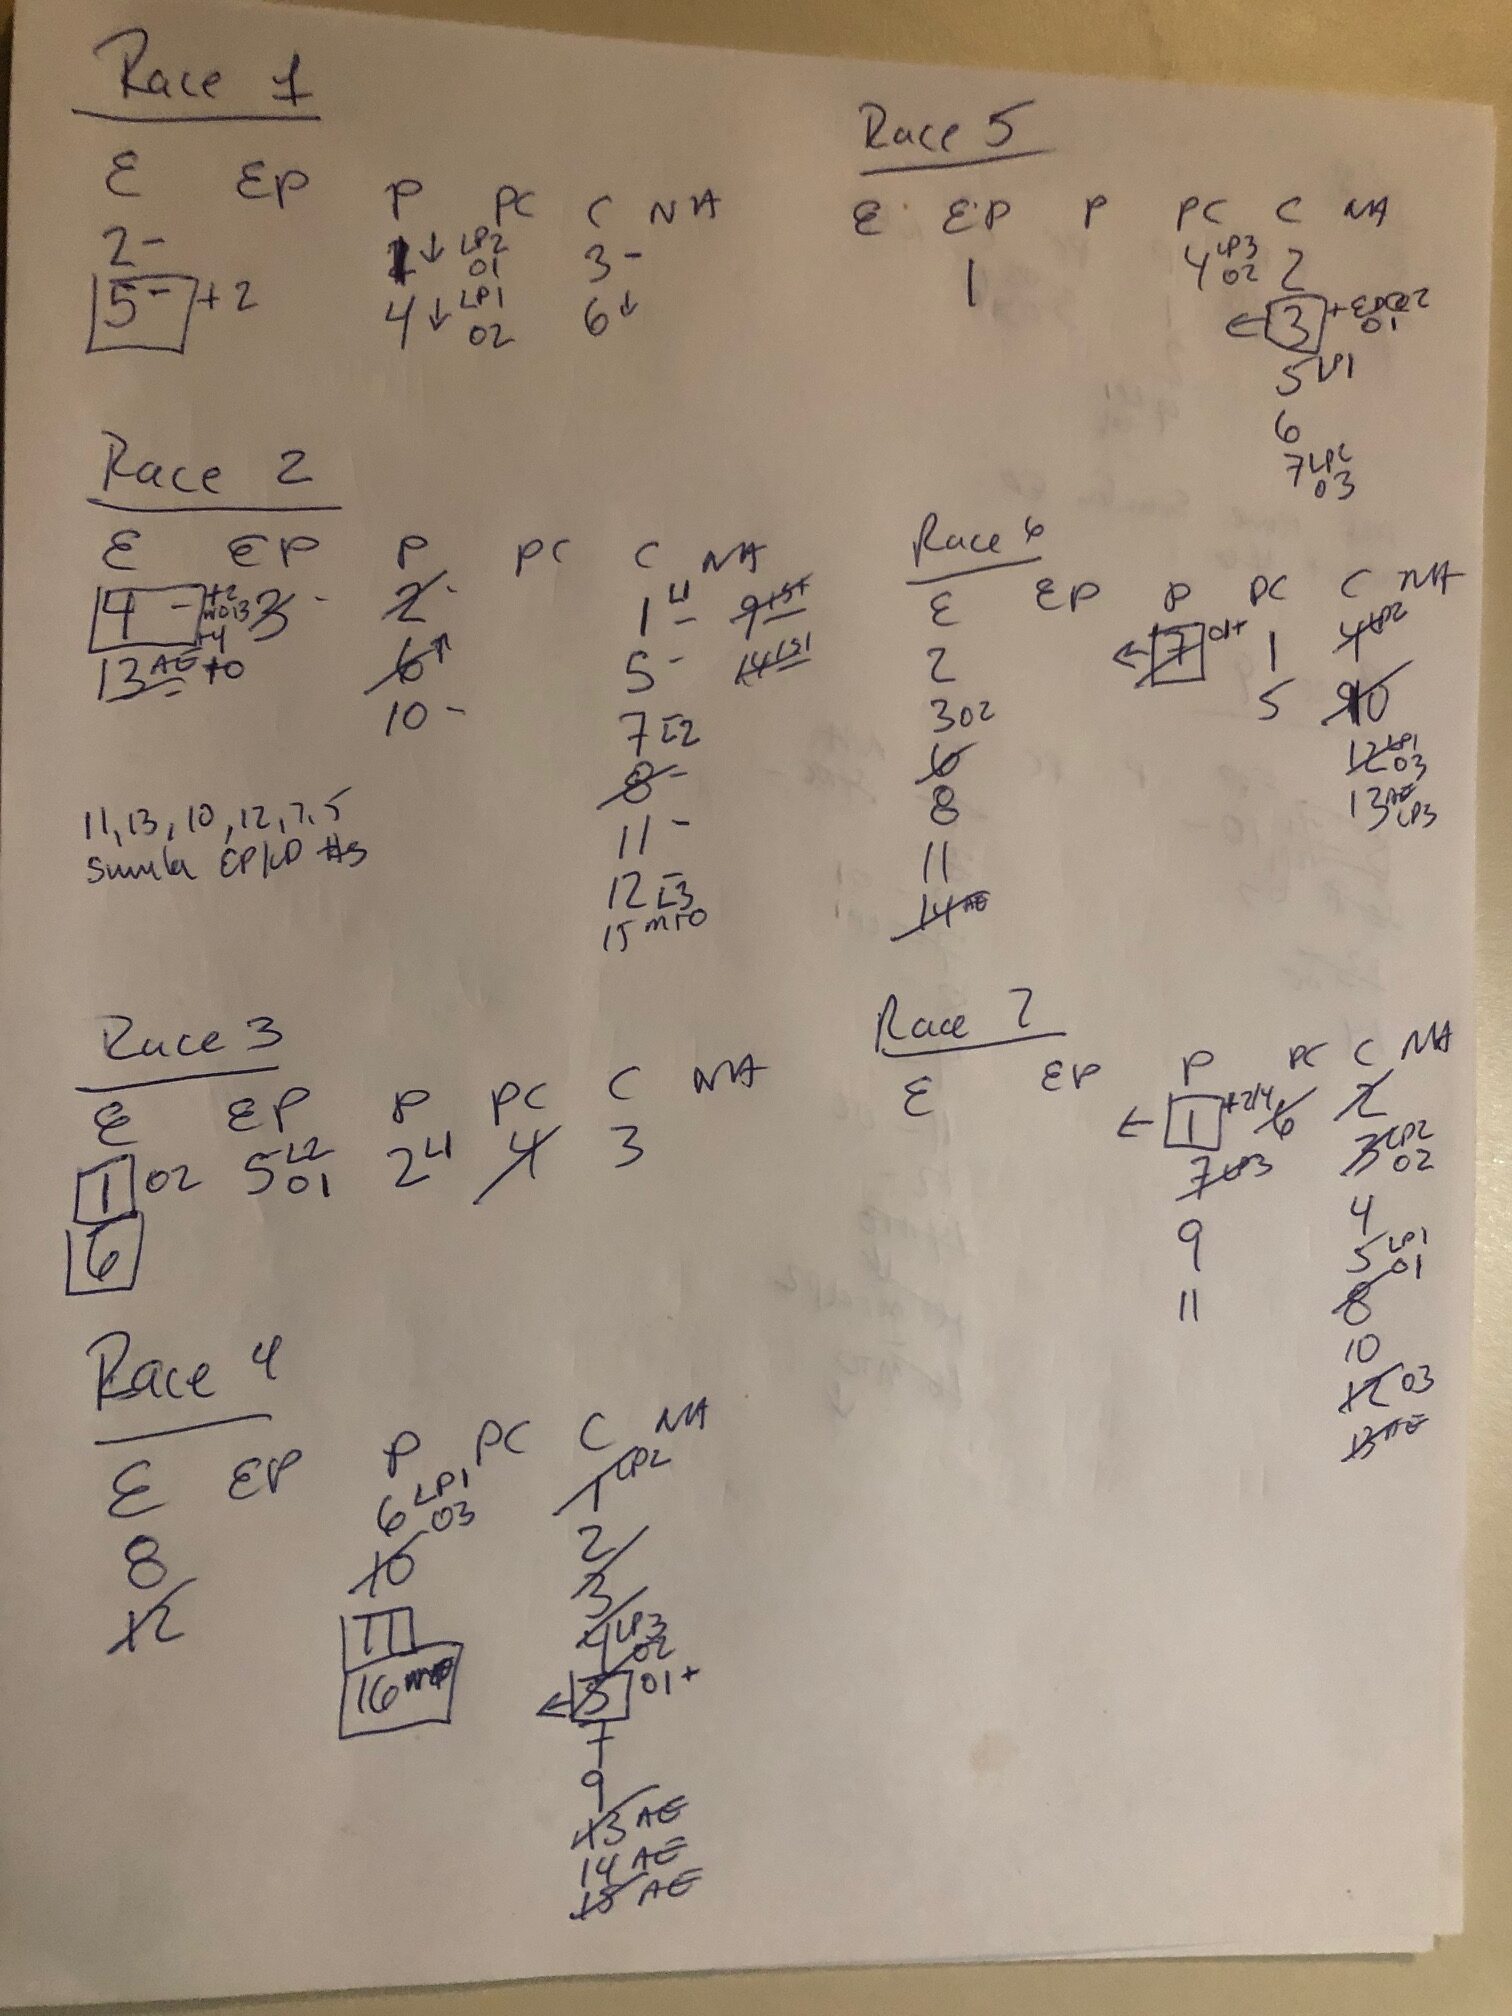 Race 1
E EP P PC C NA
2 - 1 ↓ LP2 01 3 -
5 - + 2 4 ↓ LP1 02 6 ↓
Race 2
E EP P PC C NA
4 - +2 3 - 2 - 1 L1 - 9 1st
+4
13 AE +0 6 ↑ 5 - 14 1st
10 - 7 L2
8 -
11 -
12 L3
15 MTO
11, 13, 10, 12, 7, 5
EP/LP #s
Race 3
E EP P PC C NA
1 02 5 L2 01 2 L1 4 3
6
Race 4
E EP P PC C NA
8 6 LP1 03 1 LP2
12 10 2
11 3
16 4 LP3 02
← 5 01 +
7
9
13 AE
14 AE
15 AE
Race 5
E EP P PC C NA
1 4 LP3 02 2
← 3 + 01
5 LP1
6
7 03
Race 6
E EP P PC C NA
2 ← 7 01+ 1 4 LP2
3 02 5 10
6 12 LP1 03
8 13 AE LP3
11
14 AE
Race 7
E EP P PC C NA
← 1 6 2
7 LP3 3 LP2 02
9 4
11 5 LP1 01
8
10
12 03
13 AE